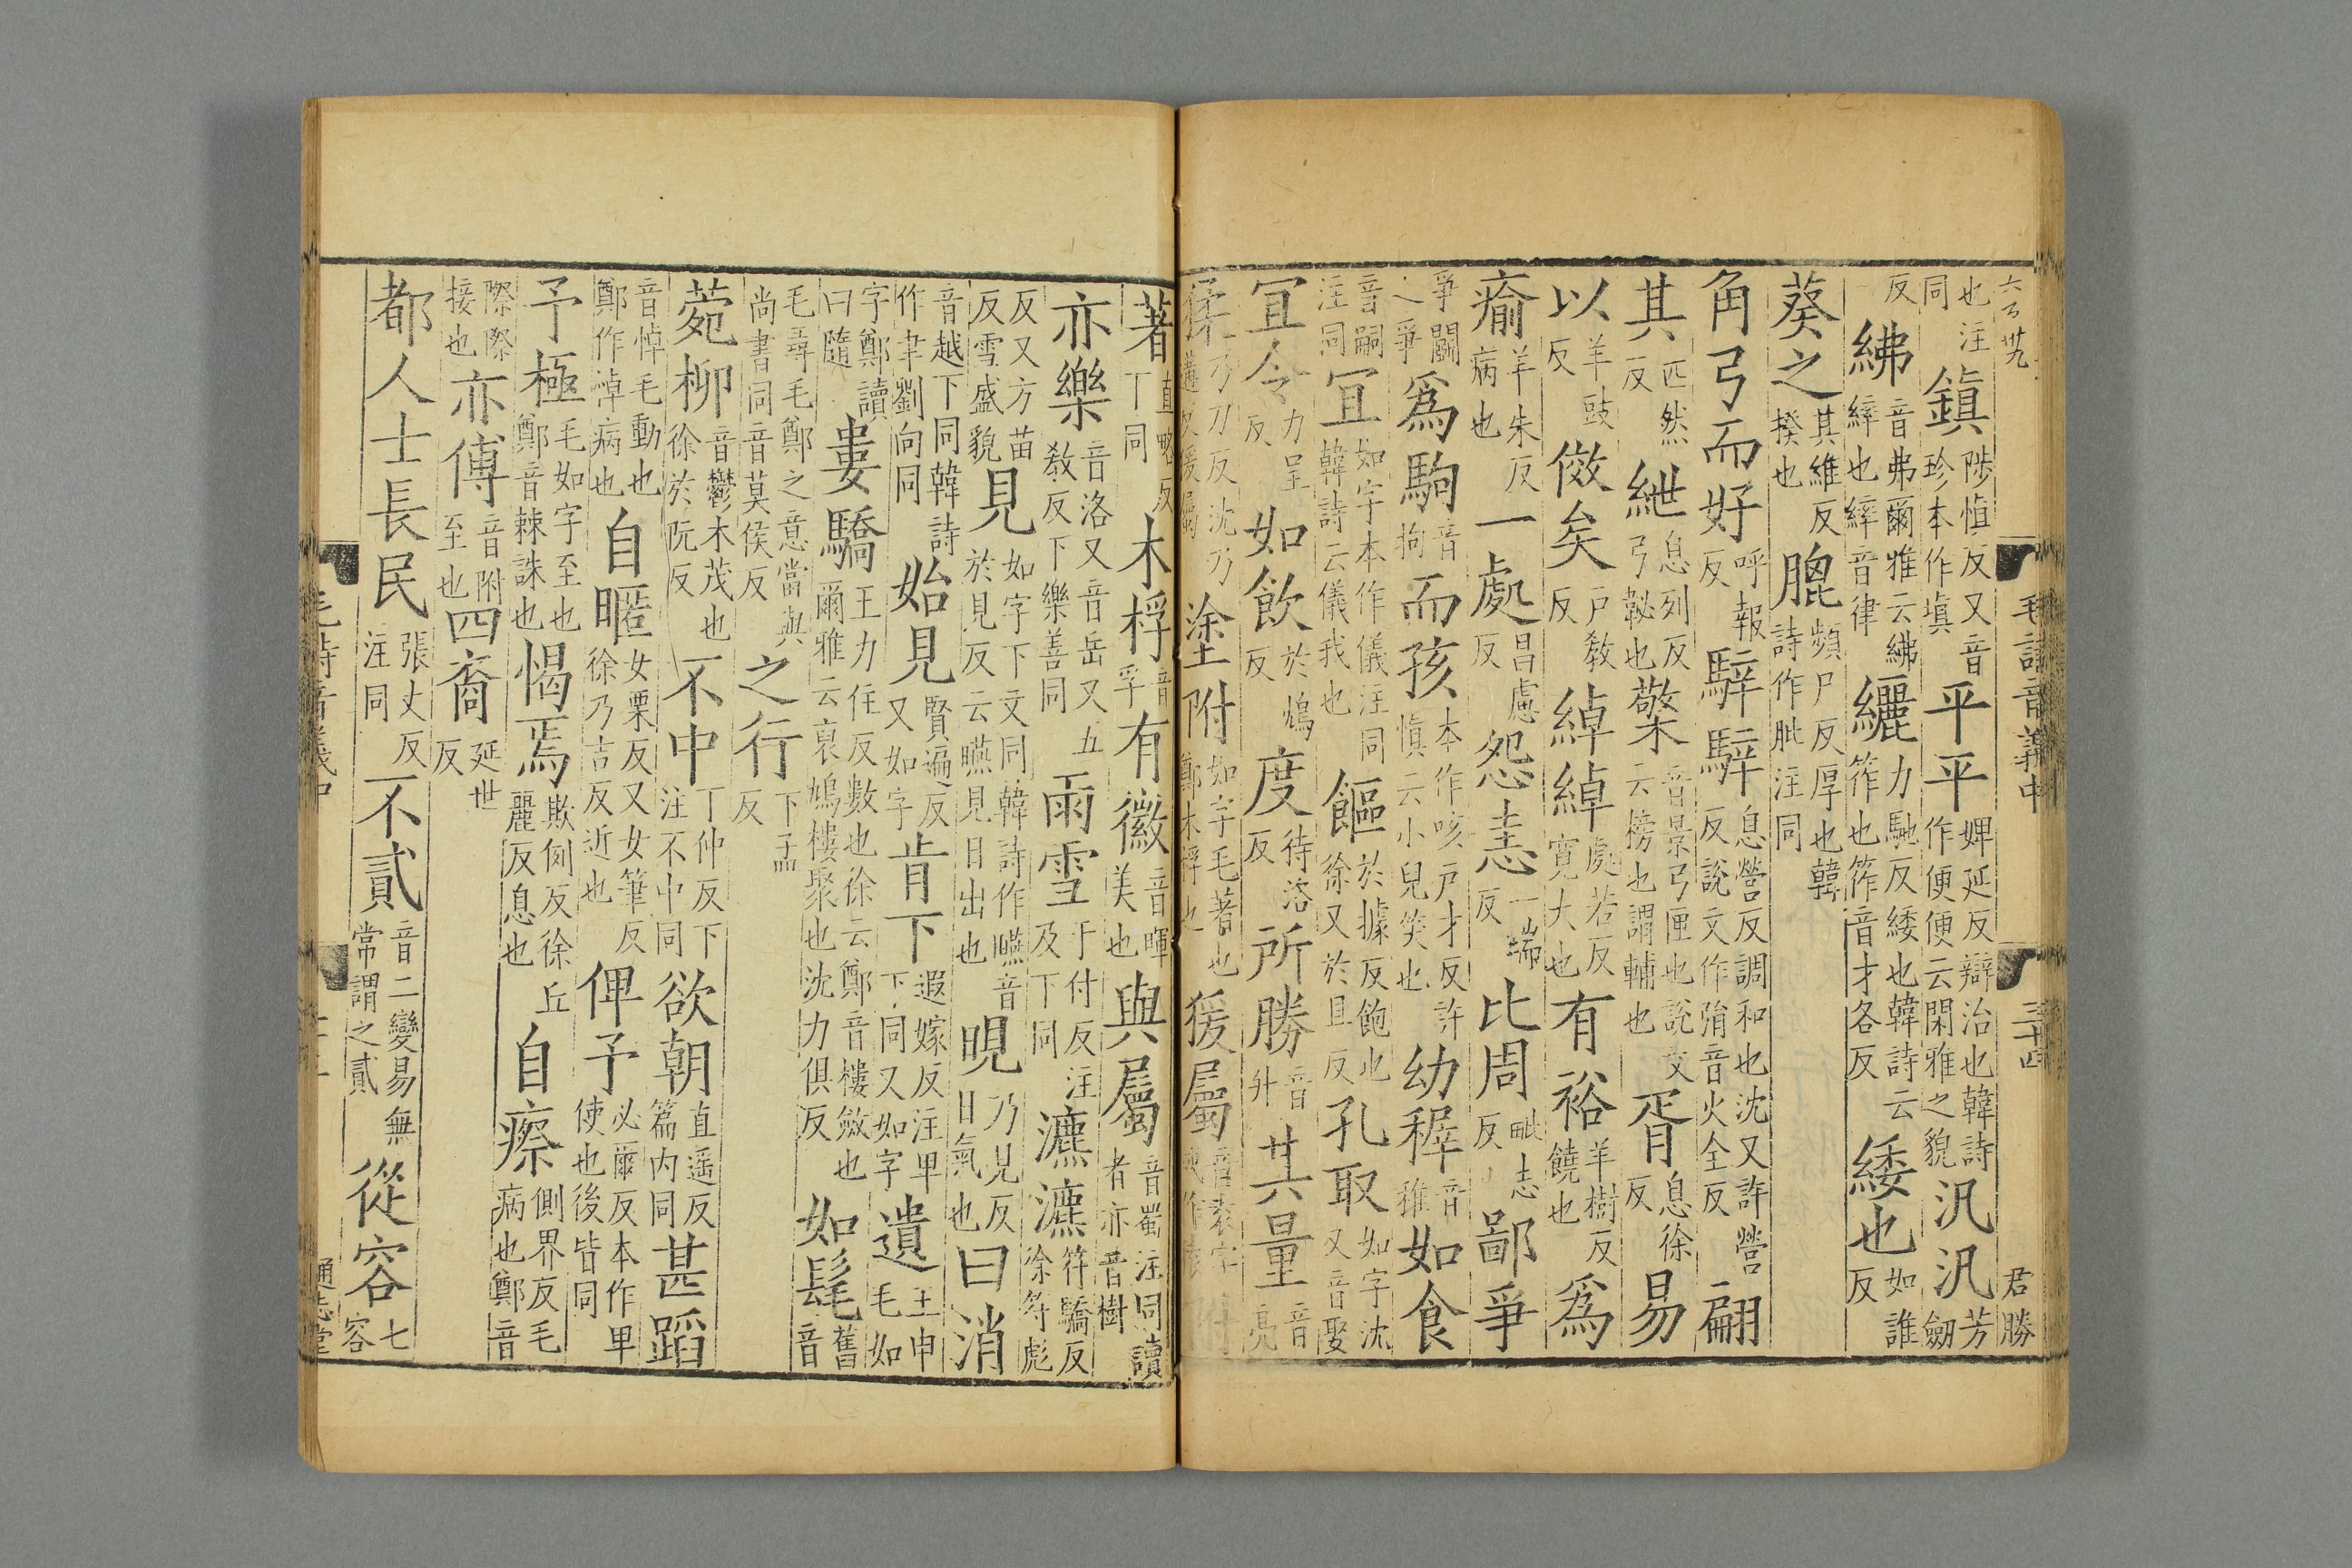 六百卅九
毛詩音義中
三十四
君勝
也注同 鎮陟愼反又音珍本作塡 平平婢延反辯治也韓詩作便便云閑雅之貌 汎汎芳劒
反 紼音弗爾雅云紼繂也繂音律 纚力馳反緌也韓詩云筰也筰音才各反 緌也如誰反
葵之其維反揆也 膍頻尸反厚也韓詩作肶注同
角弓而好呼報反 騂騂息營反調和也沈又許營反說文作弲音火全反 翩
其匹然反 紲息列反弓䪐也 檠音景弓匣也說文云榜也謂輔也 胥息徐反 易
以羊豉反 傚矣戶教反 綽綽處若反寬大也 有裕羊樹反饒也 爲
瘉羊朱反病也 一處昌慮反 怨恚一端反 比周毗志反 鄙爭
爭鬭之爭 爲駒音拘 而孩本作咳戶才反許愼云小兒笑也 幼稺音稚 如食
音嗣注同 宜如字本作儀注同韓詩云儀我也 饇於據反飽也徐又於且反 孔取如字沈又音娶
宜令力呈反 如飲於鴆反 度待洛反 所勝音升 其量音亮
猱乃刀反沈乃遘反猨屬 塗附如字毛著也鄭木桴也 猨屬
著直略反下同 木桴音孚 有徽音暉美也 與屬音蜀注同讀者亦音樹
亦樂音洛又音岳又五教反下樂善同 雨雪于付反注及下同 瀌瀌符驕反徐符彪
反又方苗反雪盛貌 見如字下文同韓詩作曣音於見反云曣見日出也 晛乃見反日氣也 曰消
音越下同韓詩作聿劉向同 始見賢遍反又如字 肯下遐嫁反注卑下同又如字 遺王申毛如
字鄭讀曰隨 婁驕王力住反數也徐云鄭音樓爾雅云裒鳩樓聚也沈力俱反樓斂也 如髦舊音
毛尋毛鄭之意當與尚書同音莫侯反 之行下孟反
菀柳音鬱木茂也徐於阮反 不中丁仲反下注不中同 欲朝直遥反篇内同 甚蹈
音悼毛動也鄭作悼病也 自暱女栗反又女筆反徐乃吉反近也 俾予必爾反本作卑使也後皆同
予極毛如字至也鄭音棘誅也 愒焉欺例反徐丘麗反息也 自瘵側界反毛病也鄭音
際際接也 亦傅音附至也 四裔延世反
都人士長民張丈反注同 不貳音二變易無常謂之貳 從容七容
毛詩音義中
通志堂